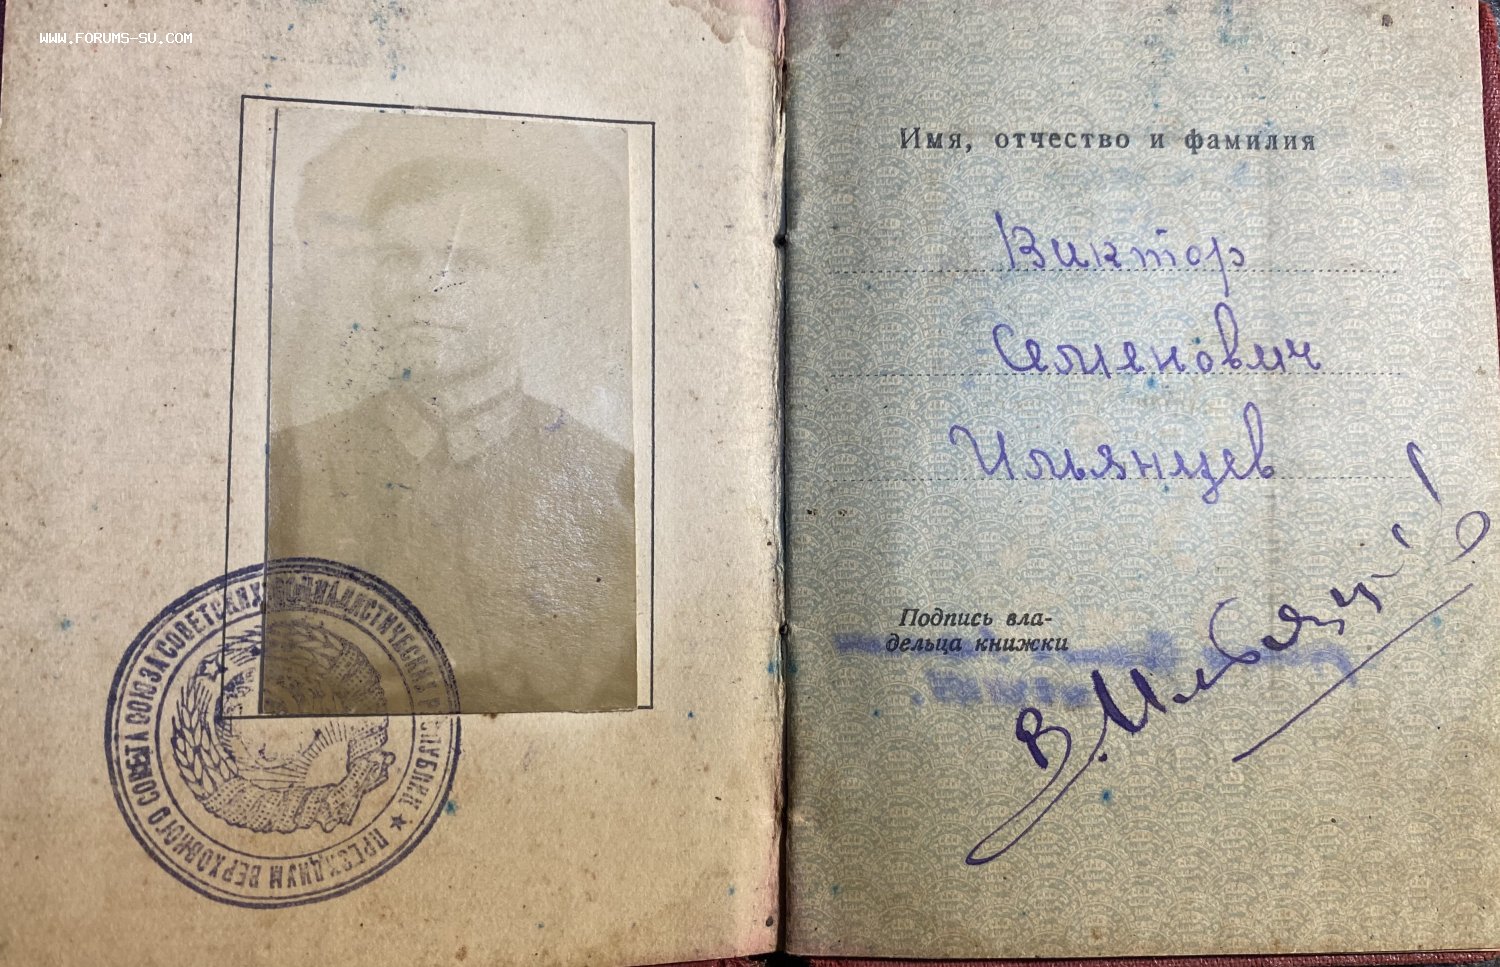 WWW.FORUMS-SU.COM
ПРЕЗИДИУМ ВЕРХОВНОГО СОВЕТА СОЮЗА СОВЕТСКИХ СОЦИАЛИСТИЧЕСКИХ РЕСПУБЛИК ★
Имя, отчество и фамилия
Виктор
Семенович
Ильянцев
Подпись вла-
дельца книжки